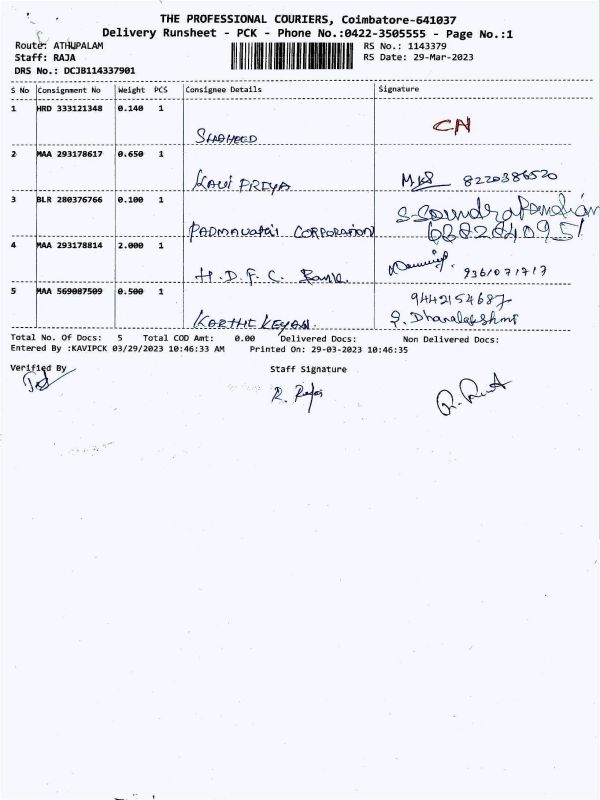 THE PROFESSIONAL COURIERS, Coimbatore-641037
Delivery Runsheet - PCK - Phone No.:0422-3505555 - Page No.:1
Route: ATHUPALAM RS No.: 1143379
Staff: RAJA RS Date: 29-Mar-2023
DRS No.: DCJB114337901
S No Consignment No Weight PCS Consignee Details Signature
1 HRD 333121348 0.140 1
SHAHEED CN
2 MAA 293178617 0.650 1
KAVI PRIYA 8220386520
3 BLR 280376766 0.100 1
PADMAVATHI CORPORATION
4 MAA 293178814 2.000 1
H.D.F.C. Bank. 9361071717
5 MAA 569087509 0.500 1 9442154687
KARTHI KEYAN. S. Dhanalakshmi
Total No. Of Docs: 5 Total COD Amt: 0.00 Delivered Docs: Non Delivered Docs:
Entered By :KAVIPCK 03/29/2023 10:46:33 AM Printed On: 29-03-2023 10:46:35
Verified By Staff Signature